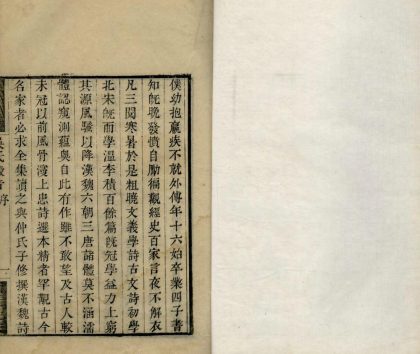 僕幼抱羸疾不就外傅年十六始卒業四子書
知旣晩發憤自勵徧觀經史百家言夜不解衣
凡三閱寒暑於是粗曉文義學詩古文詩初學
北宋旣而學温李積百餘篇旣冠學益力上窮
其源風騷以降漢魏六朝三唐諸體莫不涵濡
體認窺測蘊奧自此有作雖不敢望及古人較
未冠以前風骨漫上忠詩選本精者罕觀古今
名家者必求全集讀之與仲氏子修撰漢魏詩
序